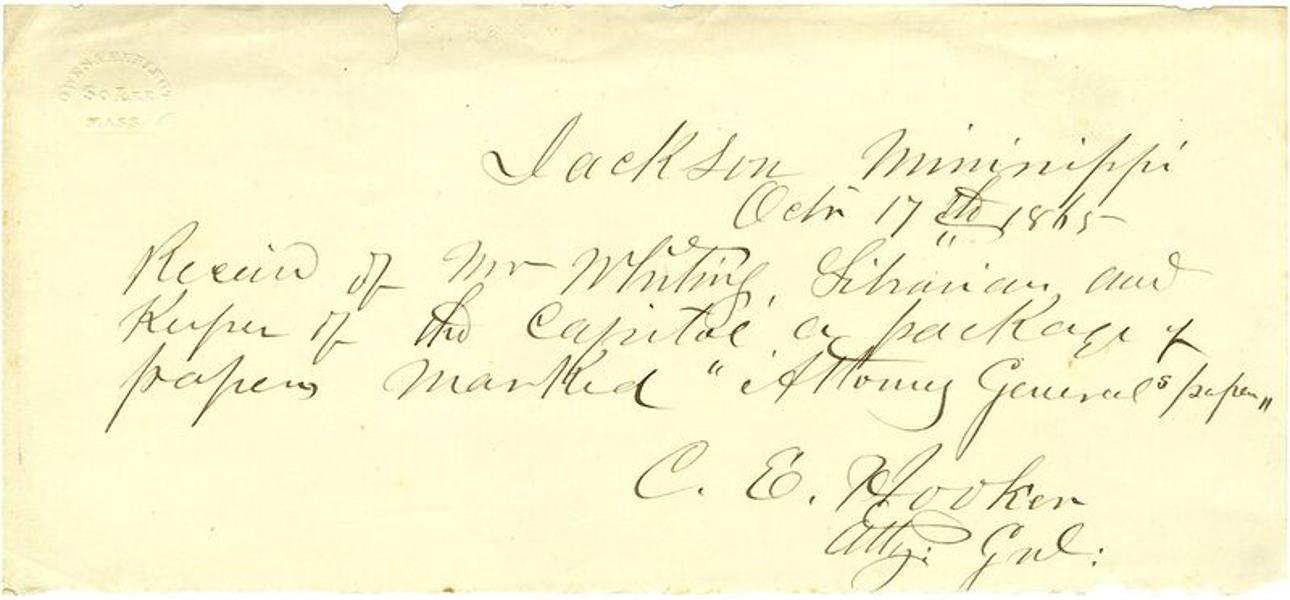 So. Lee
MASS.
Jackson Mississippi
Octr 17th 1865
Received of Mr Whiting, Librarian and
Keeper of the Capitol a package of
papers marked "Attorney General's papers"
C. E. Hooker
Atty: Gnl: